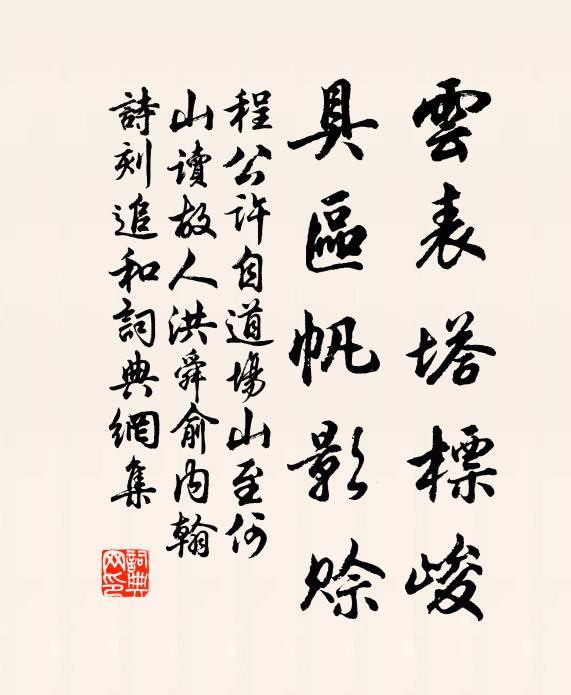 雲表塔標峻
具區帆影賒
程公許自道場山至何
山讀故人洪舜俞内翰
詩刻追和詞典網集
詞典网印